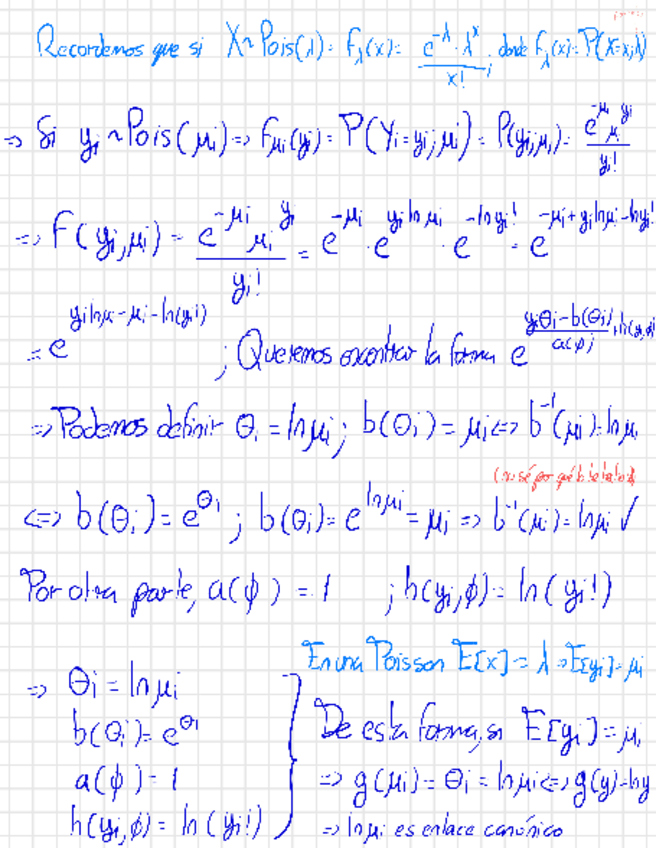 Recordemos que si X~Pois(λ): F_λ(x) = e^{-λ}·λ^x / x! ; donde F_λ(x) = P(X=x;λ)
=> Si y_i ~ Pois(μ_i) => F_{μ_i}(y_i) = P(Y_i=y_i; μ_i) = P(y_i;μ_i) = e^{-μ_i} μ_i^{y_i} / y_i!
=> F(y_i, μ_i) = e^{-μ_i} μ_i^{y_i} / y_i! = e^{-μ_i} · e^{y_i ln μ_i} · e^{-ln y_i!} = e^{-μ_i + y_i ln μ_i - ln y_i!}
= e^{y_i ln μ_i - μ_i - ln(y_i!)} ; Queremos encontrar la forma e^{(y_iθ_i - b(θ_i))/a(φ) + h(y_i,φ)}
=> Podemos definir θ_i = ln μ_i ; b(θ_i) = μ_i <=> b^{-1}(μ_i) = ln μ_i
(no sé por qué b
<=> b(θ_i) = e^{θ_i} ; b(θ_i) = e^{ln μ_i} = μ_i => b^{-1}(μ_i) = ln μ_i ✓
Por otra parte, a(φ) = 1 ; h(y_i, φ) = ln(y_i!)
En una Poisson E[x] = λ => E[y_i] = μ_i
=> θ_i = ln μ_i
b(θ_i) = e^{θ_i}
a(φ) = 1
h(y_i, φ) = ln(y_i!)
De esta forma, si E[y_i] = μ_i
=> g(μ_i) = θ_i = ln μ_i <=> g(y) = ln y
=> ln μ_i es enlace canónico